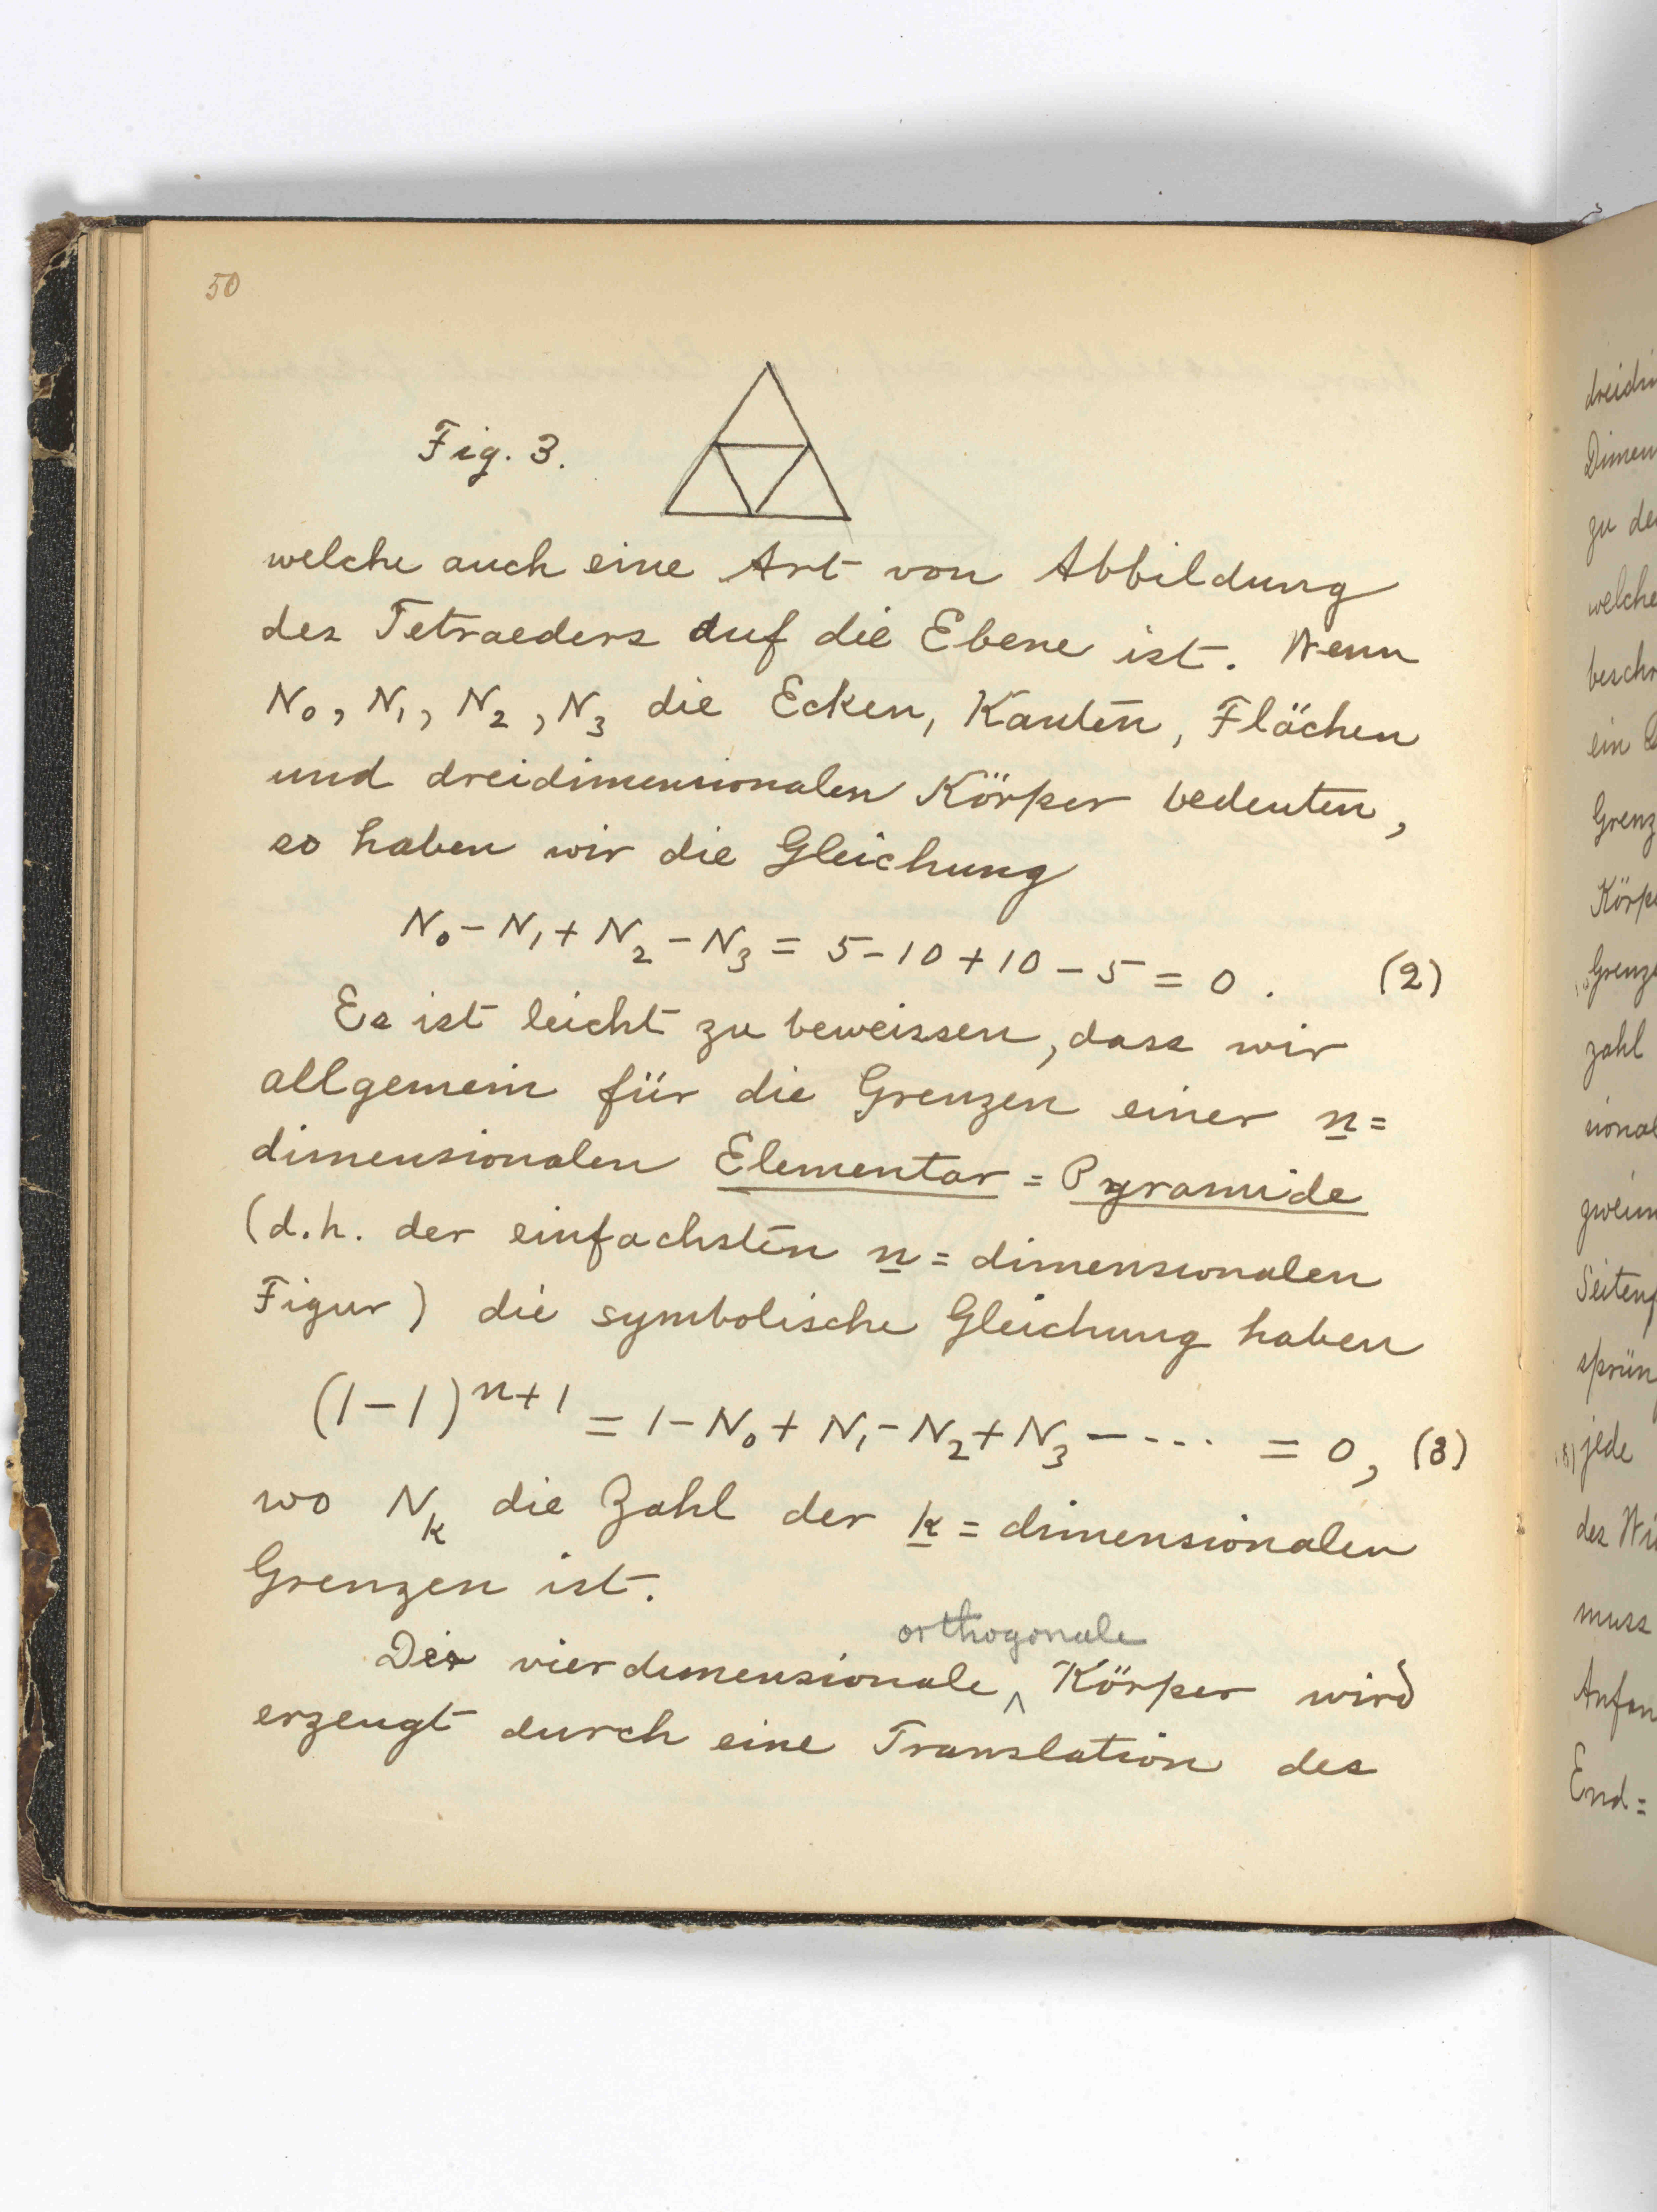 50
Fig. 3.
welche auch eine Art von Abbildung
des Tetraeders auf die Ebene ist. Wenn
N₀, N₁, N₂, N₃ die Ecken, Kanten, Flächen
und dreidimensionalen Körper bedeuten,
so haben wir die Gleichung
N₀ - N₁ + N₂ - N₃ = 5 - 10 + 10 - 5 = 0. (2)
Es ist leicht zu beweissen, dass wir
allgemein für die Grenzen einer n=
dimensionalen Elementar = Pyramide
(d.h. der einfachsten n = dimensionalen
Figur) die symbolische Gleichung haben
(1-1)ⁿ⁺¹ = 1 - N₀ + N₁ - N₂ + N₃ - ··· = 0, (3)
wo Nₖ die Zahl der k = dimensionalen
Grenzen ist.
orthogonale
Der vierdimensionale ^ Körper wird
erzeugt durch eine Translation des
Dimen
zu de
welche
ein
Grenz
Körpe
Grenze
zahl
Seiten
sprün
jede
des
muss
Anfan
End=